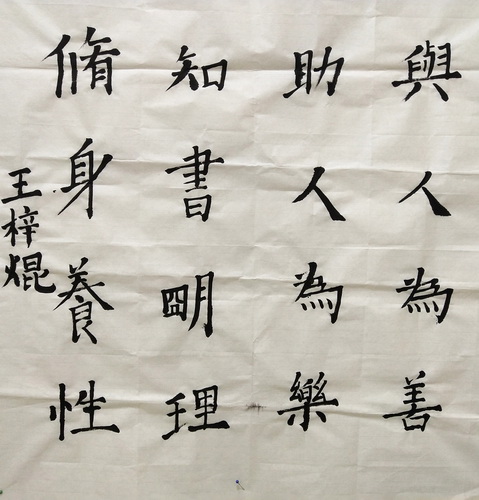 與人為善
助人為樂
知書明理
脩身養性
王梓焜